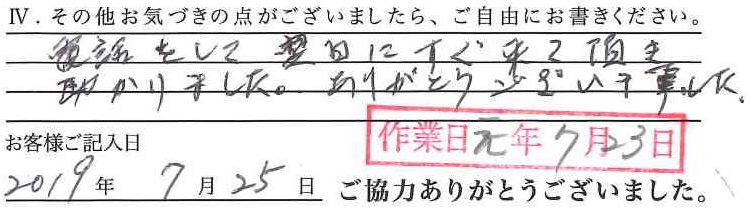 Ⅳ．その他お気づきの点がございましたら、ご自由にお書きください。
電話をして翌日にすぐ来て頂き
助かりました。ありがとうございました。
お客様ご記入日
作業日元年7月23日
2019年 7月25日 ご協力ありがとうございました。